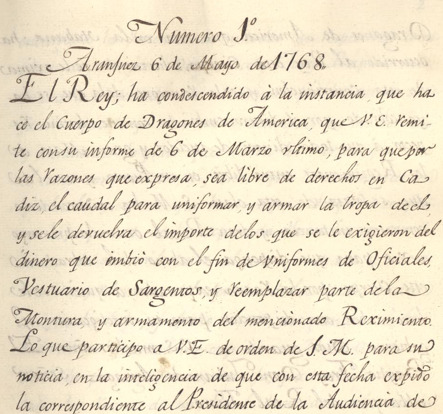 Numero 1º
Aranjuez 6 de Mayo de 1768.
El Rey; ha condescendido à la instancia, que ha
ce el Cuerpo de Dragones de America, que V.E. remi-
te con su informe de 6 de Marzo ultimo, para que por
las razones que expresa, sea libre de derechos en Ca
diz, el caudal para uniformar, y armar la tropa de el,
y se le devuelva el importe de los que se le exigieron del
dinero que embió con el fin de Vniformes de Oficiales,
Vestuario de Sargentos, y reemplazar parte de la
Montura y armamento del mencionado Reximiento.
Lo que participo a V.E. de orden de S.M. para su
noticia en la inteligencia de que con esta fecha expido
la correspondiente al Presidente de la Audiencia de